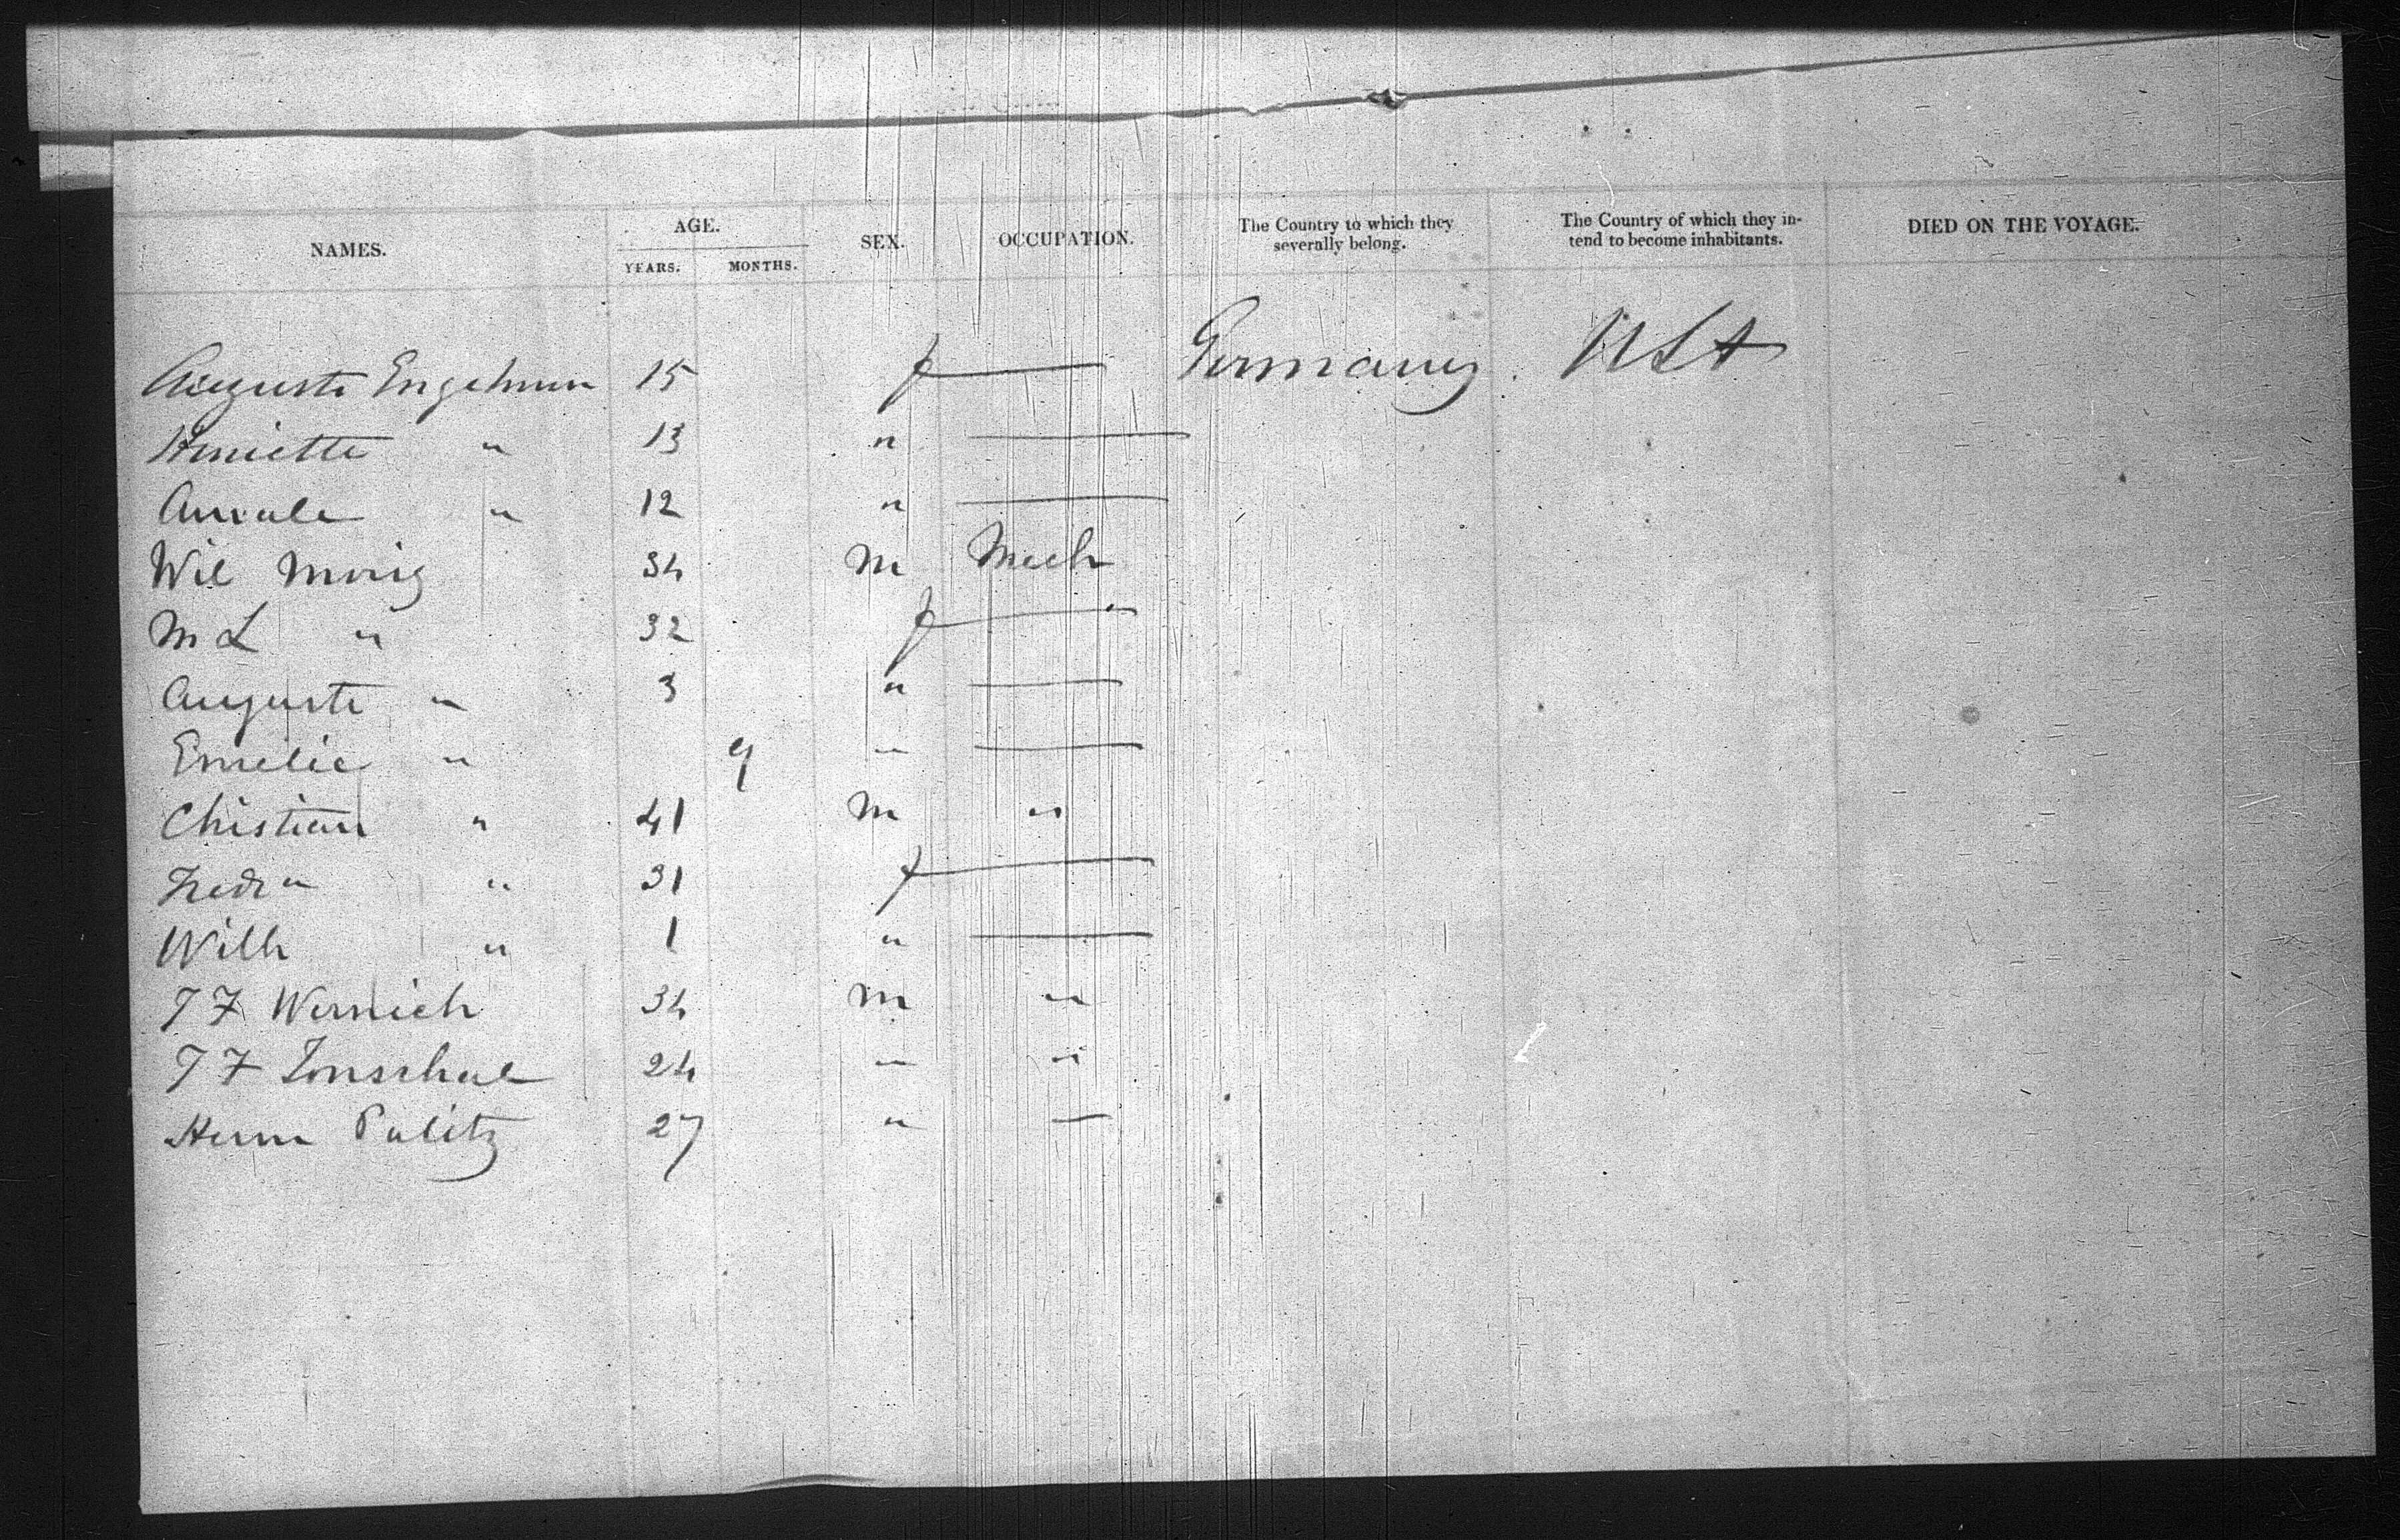 NAMES. AGE. SEX. OCCUPATION. The Country to which they severally belong. The Country of which they intend to become inhabitants. DIED ON THE VOYAGE.
YEARS. MONTHS.
Auguste Engelmun 15 f — Germany. USA
Henriette " 13 " —
Amale " 12 " —
Wil Moriz 34 m Mech
M L " 32 f —
Auguste " 3 " —
Emelie " 9 " —
Chistian " 41 m "
" 31 f —
Wilh " 1 " —
Wernich 34 m "
24 " "
Herm Politz 27 " —